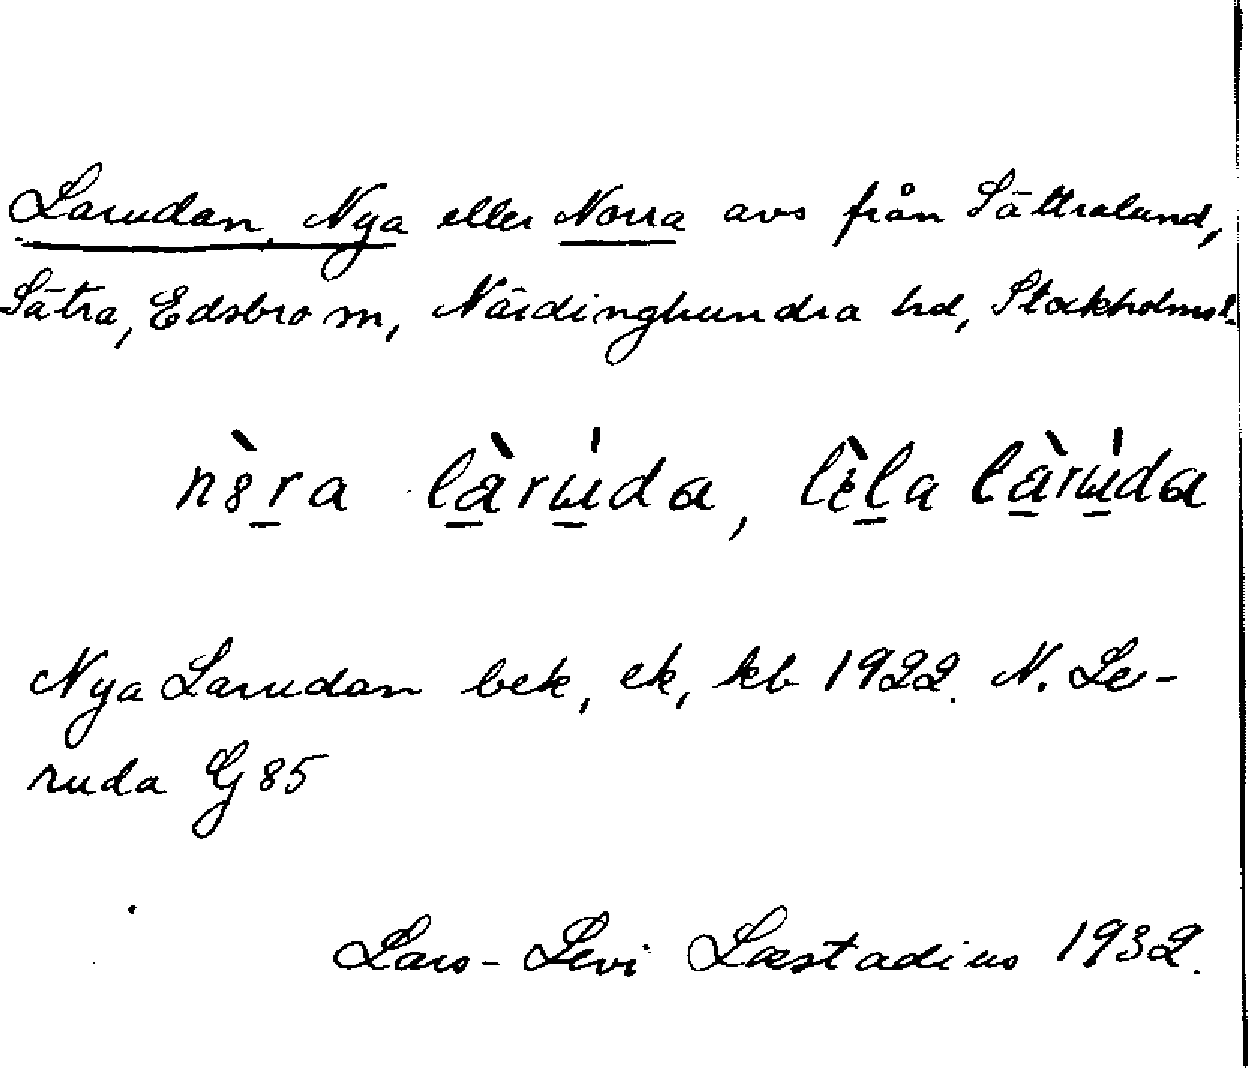 Larudan, Nya eller Norra avs från Sättraland,
Sätra, Edsbro sn, Närdinghundra hd, Stockholms l.
nòra làrúda, lìla làrúda
Nya Larudan bek, ek, kb 1922. N. Le-
ruda G 85
Lars-Levi Læstadius 1932.